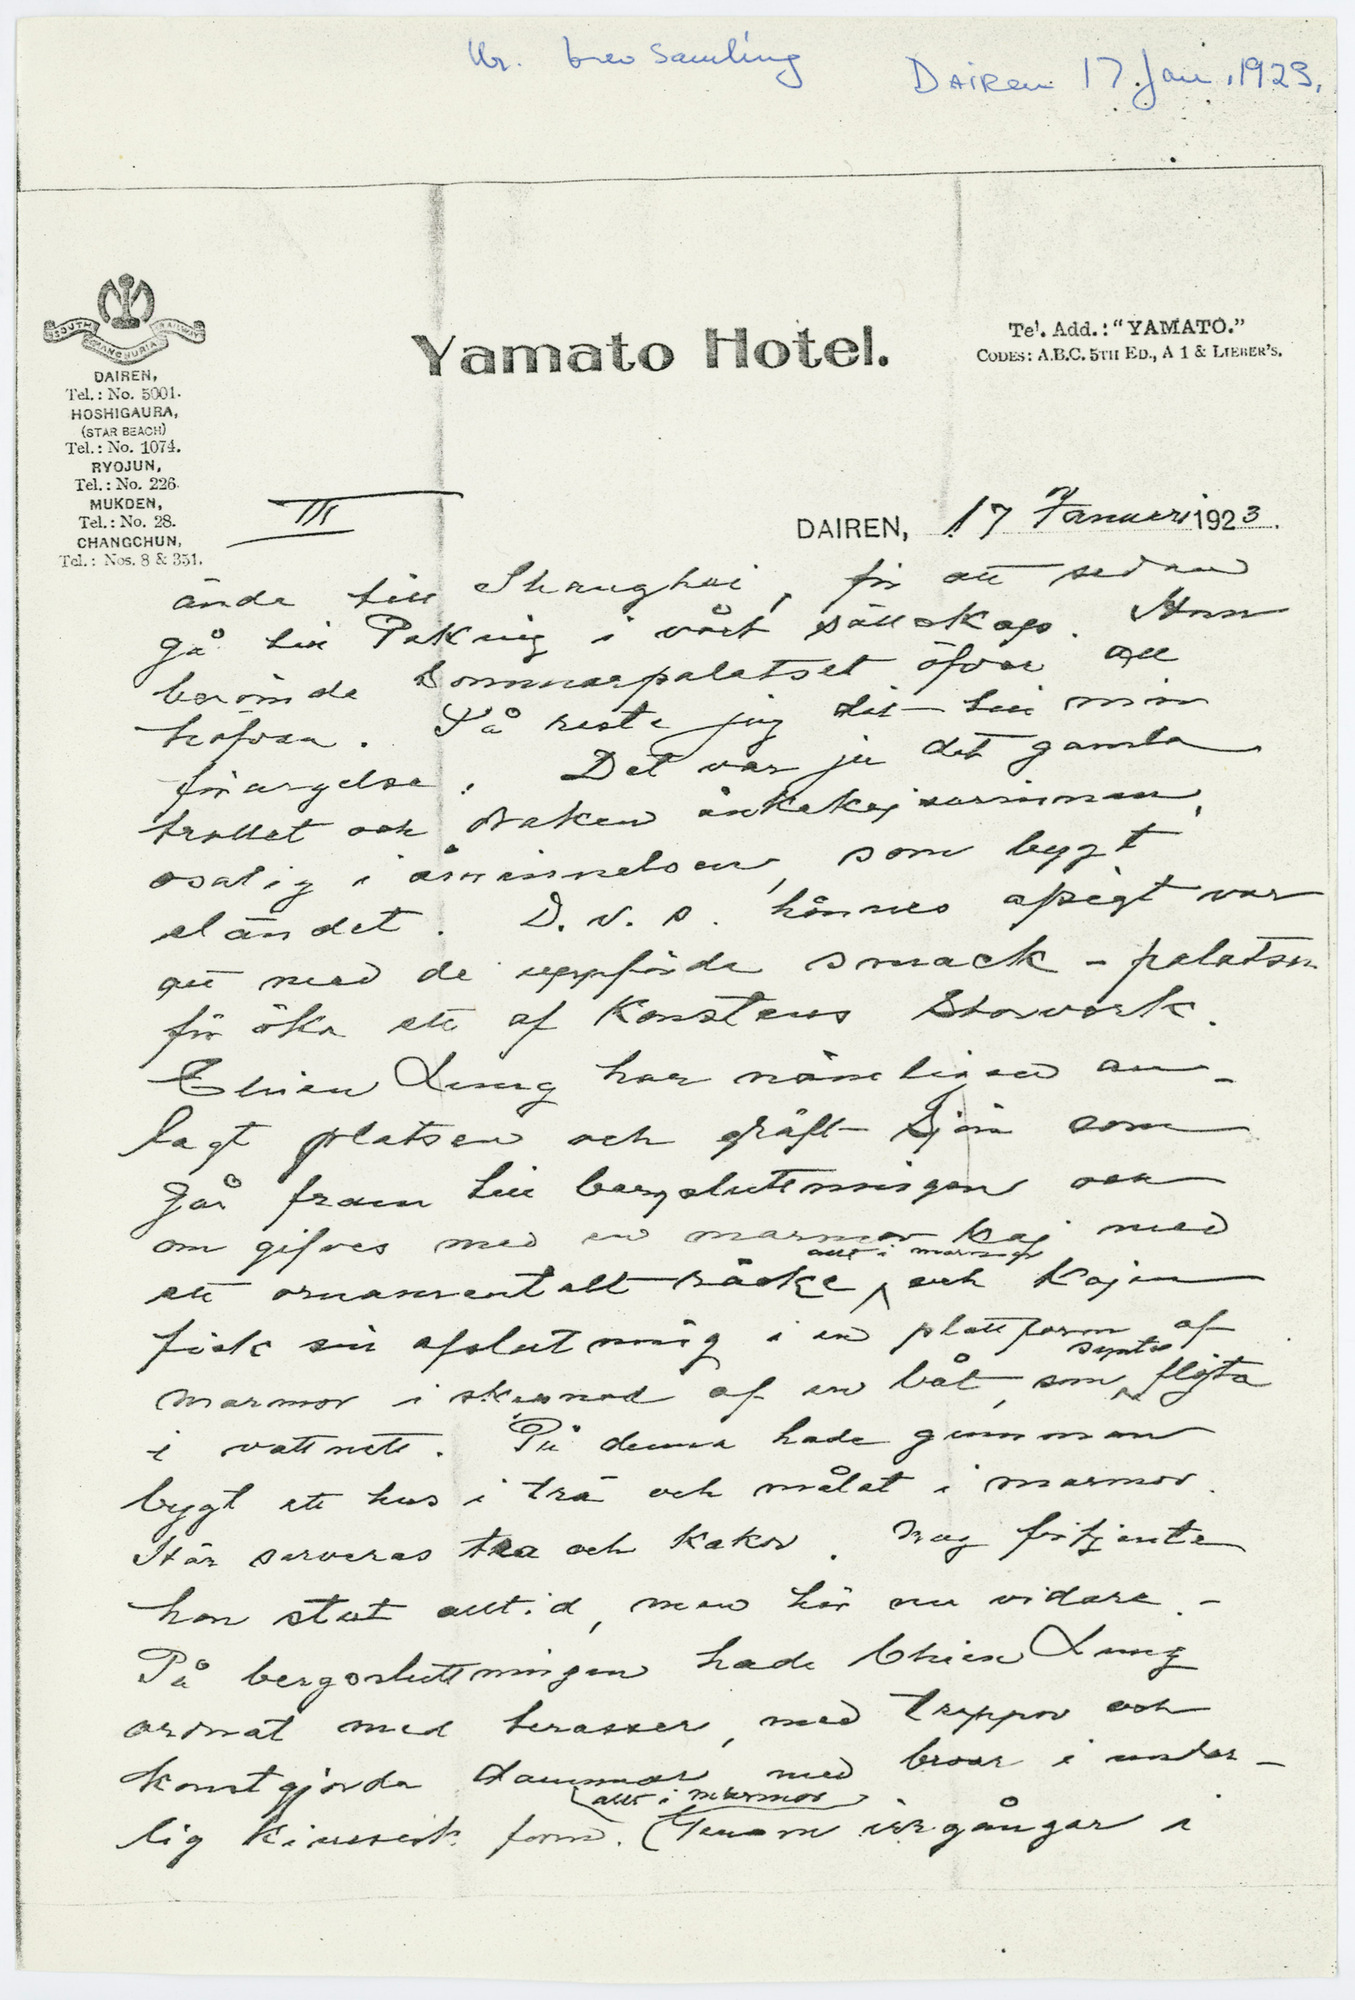 Ur. brev samling
Dairen 17 Jan. 1923.
SOUTH MANCHURIA RAILWAY
DAIREN,
Tel.: No. 5001.
HOSHIGAURA,
(STAR BEACH)
Tel.: No. 1074.
RYOJUN,
Tel.: No. 226.
MUKDEN,
Tel.: No. 28.
CHANGCHUN,
Tel.: Nos. 8 & 351.
Yamato Hotel.
Tel. Add.: "YAMATO."
CODES: A.B.C. 5TH ED., A 1 & LIEBER'S.
III
DAIREN, 17 Januari 1923.
ända till Shanghai, för att sedan
gå till Peking i vårt sällskap. Hon
berömde Sommarpalatset öfver all
höfvan. Så reste jag dit till min
förargelse. Det var ju det gamla
trollet och draken änkekejsarinnan,
osalig i åminnelsen, som bygt
eländet. D.v.s. hännes afsigt var
att med de uppförda smack-palatsen
för öka ett af konstens Storverk.
Chien Lung har nämligen an-
lagt platsen och gräft Sjön som
går fram till bergsluttningen och
om gifves med en marmor kaj med
ett ornamentalt räcke allt i marmor och Kajen
fick sin afslutning i en plattform af
marmor i skepnad af en båt, som syntes flyta
i vattnet. På denna hade gumman
bygt ett hus i trä och målat i marmor.
Här serveras tea och kakor. Nog förtjente
hon stut alltid, men hör nu vidare. -
På bergssluttningen hade Chien Lung
ordnat med terasser, med trappor och
konstgjorda dammar med broar i under-
lig kinesisk form. (allt i marmor) Genom irrgångar i